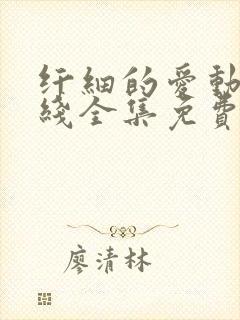 纤細的愛動
綫全集免費
廖清林